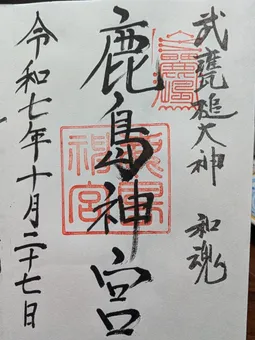 武甕槌大神 和魂
鹿島神宮
令和七年十月二十七日